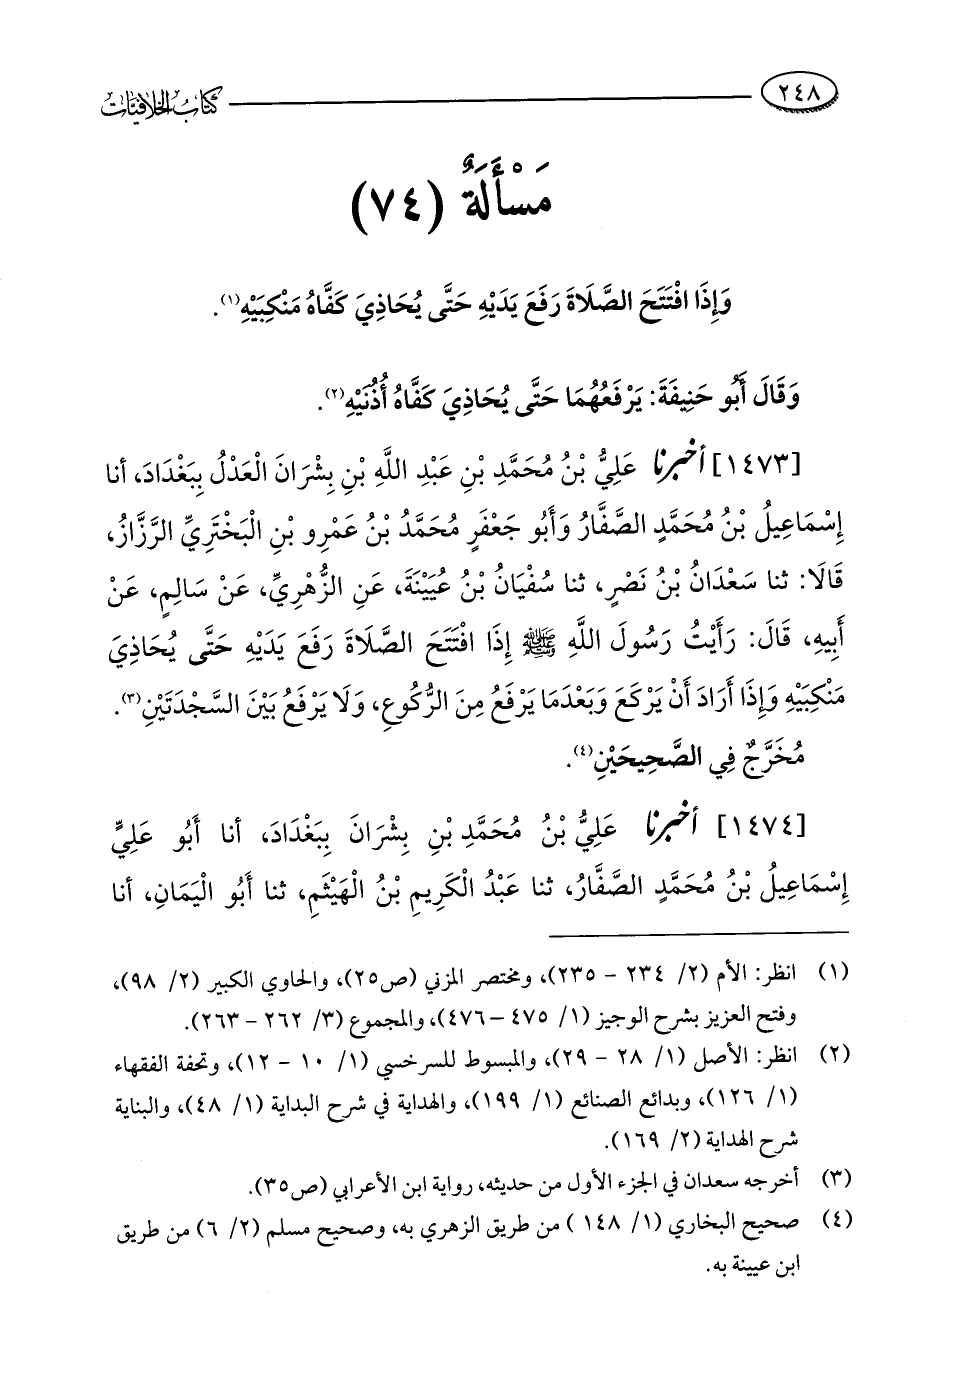 ٢٤٨
كتاب الخلافيات
مَسْأَلَةٌ (٧٤)
وَإِذَا افْتَتَحَ الصَّلَاةَ رَفَعَ يَدَيْهِ حَتَّى يُحَاذِيَ كَفَّاهُ مَنْكِبَيْهِ(١).
وَقَالَ أَبُو حَنِيفَةَ: يَرْفَعُهُمَا حَتَّى يُحَاذِيَ كَفَّاهُ أُذُنَيْهِ(٢).
[١٤٧٣] أخبرنا عَلِيُّ بْنُ مُحَمَّدِ بْنِ عَبْدِ اللَّهِ بْنِ بِشْرَانَ الْعَدْلُ بِبَغْدَادَ، أنا
إِسْمَاعِيلُ بْنُ مُحَمَّدٍ الصَّفَّارُ وَأَبُو جَعْفَرٍ مُحَمَّدُ بْنُ عَمْرِو بْنِ الْبَخْتَرِيِّ الرَّزَّازُ،
قَالَا: ثنا سَعْدَانُ بْنُ نَصْرٍ، ثنا سُفْيَانُ بْنُ عُيَيْنَةَ، عَنِ الزُّهْرِيِّ، عَنْ سَالِمٍ، عَنْ
أَبِيهِ، قَالَ: رَأَيْتُ رَسُولَ اللَّهِ ﷺ إِذَا افْتَتَحَ الصَّلَاةَ رَفَعَ يَدَيْهِ حَتَّى يُحَاذِيَ
مَنْكِبَيْهِ وَإِذَا أَرَادَ أَنْ يَرْكَعَ وَبَعْدَمَا يَرْفَعُ مِنَ الرُّكُوعِ، وَلَا يَرْفَعُ بَيْنَ السَّجْدَتَيْنِ(٣).
مُخَرَّجٌ فِي الصَّحِيحَيْنِ(٤).
[١٤٧٤] أخبرنا عَلِيُّ بْنُ مُحَمَّدِ بْنِ بِشْرَانَ بِبَغْدَادَ، أنا أَبُو عَلِيٍّ
إِسْمَاعِيلُ بْنُ مُحَمَّدٍ الصَّفَّارُ، ثنا عَبْدُ الْكَرِيمِ بْنُ الْهَيْثَمِ، ثنا أَبُو الْيَمَانِ، أنا
(١) انظر: الأم (٢/ ٢٣٤ - ٢٣٥)، ومختصر المزني (ص٢٥)، والحاوي الكبير (٢/ ٩٨)،
وفتح العزيز بشرح الوجيز (١/ ٤٧٥ -٤٧٦)، والمجموع (٣/ ٢٦٢ - ٢٦٣).
(٢) انظر: الأصل (١/ ٢٨ - ٢٩)، والمبسوط للسرخسي (١/ ١٠ - ١٢)، وتحفة الفقهاء
(١/ ١٢٦)، وبدائع الصنائع (١/ ١٩٩)، والهداية في شرح البداية (١/ ٤٨)، والبناية
شرح الهداية (٢/ ١٦٩).
(٣) أخرجه سعدان في الجزء الأول من حديثه، رواية ابن الأعرابي (ص٣٥).
(٤) صحيح البخاري (١/ ١٤٨ ) من طريق الزهري به، وصحيح مسلم (٢/ ٦) من طريق
ابن عيينة به.